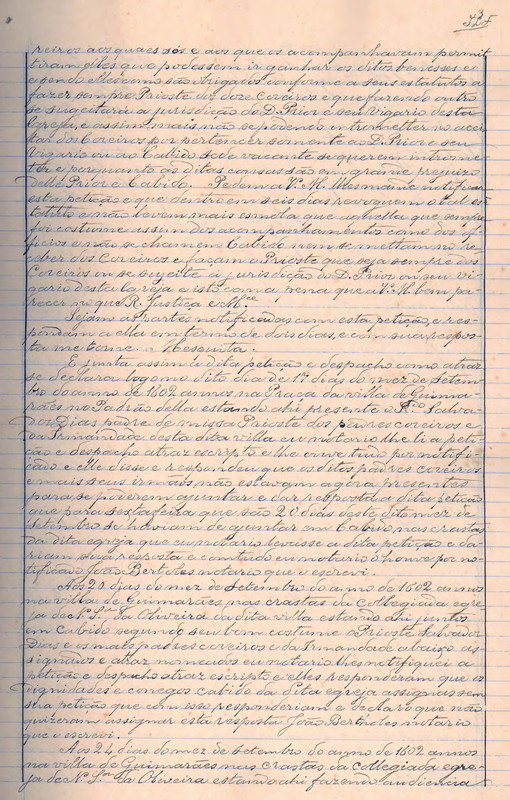 reiros aos quaes sós e aos que os acompanhavam permit
tiram elles que podessem ir ganhar os ditos benesses e
e sendo elles como são obrigados conforme a seus estatutos a
fazer sempre Prioste dos doze Coreiros e que fazendo outro
se sugeitará a jurisdicção do D. Prior e seu Vigario desta
Igreja, e assim mais não se podendo intrometter no acei
tar dos Coreiros por pertencer somente ao D. Prior e seu
Vigario ou ao Cabido sede vacante se querem introme
ter e porquanto as ditas cousas são em grande prejuizo
delle Prior e Cabido. Pedem a V. M. lhes mande notificar
esta petição e que dentro em seis dias revoguem o tal es
tatuto e não levem mais esmola que aquella que sempre
foi costume assim dos acompanhamentos como dos of
ficios e não se chamem Cabido nem se mettam no re
ceber dos Coreiros e façam o Prioste que seja sempre dos
Coreiros ou se sujeite á jurisdicção do D. Prior ou seu vi
gario desta Igreja e isto com a pena que a V. M. bem pa
recer no que R. Justiça e M.ce
Sejam as partes notificadas com esta petição, e res
pondam a ella em termo de dois dias, e com sua respos
ta me torne. Mesquita.
E junta assim a dita petição e despacho como atraz
se declara logo no dito dia de 17 dias do mez de Setem
bro do anno de 1602 annos na Praça da villa de Guima
rães no Padrão della estando ahi presente o Salva
dor Dias padre de missa Prioste dos padres coreiros e
da Irmandade desta dita villa eu notario lhe li a peti
ção e despacho atraz escripto e lhe houve tudo por notifi
cado e elle disse e respondeu que os ditos padres coreiros
e mais seus irmãos não estavam agora presentes
para se poderem ajuntar e dar resposta a dita petição
que para sexta feira que são 20 dias deste dito mez de
Setembro se haviam de ajuntar em Cabido nas crastas
da dita egreja que eu notario levasse a dita petição e da
riam sua resposta e comtudo eu notario o houve por no
tificado João Bertholes notario que o escrevi.
Aos 20 dias do mez de Setembro do anno de 1602 annos
na villa de Guimarães nas crastas da Collegiada egre
ja de N. Snr.a da Oliveira da dita villa estando ahi juntos
em Cabido segundo seu bom costume o Prioste Salvador
Dias e os mais padres coreiros e da Irmandade abaixo as
signados e atraz nomeados eu notario lhes notifiquei a
petição e despacho atraz escripto e elles responderam que os
dignidades e conegos cabido da dita egreja assignassem
sua petição que com isso responderiam e declaro que não
quizeram assignar esta resposta João Bertholes notario
que o escrevi.
Aos 24 dias do mez de Setembro do anno de 1602 annos
na villa de Guimarães nas crastas da Collegiada egre
ja de N. Snr.a da Oliveira estando ahi fazendo audiencia